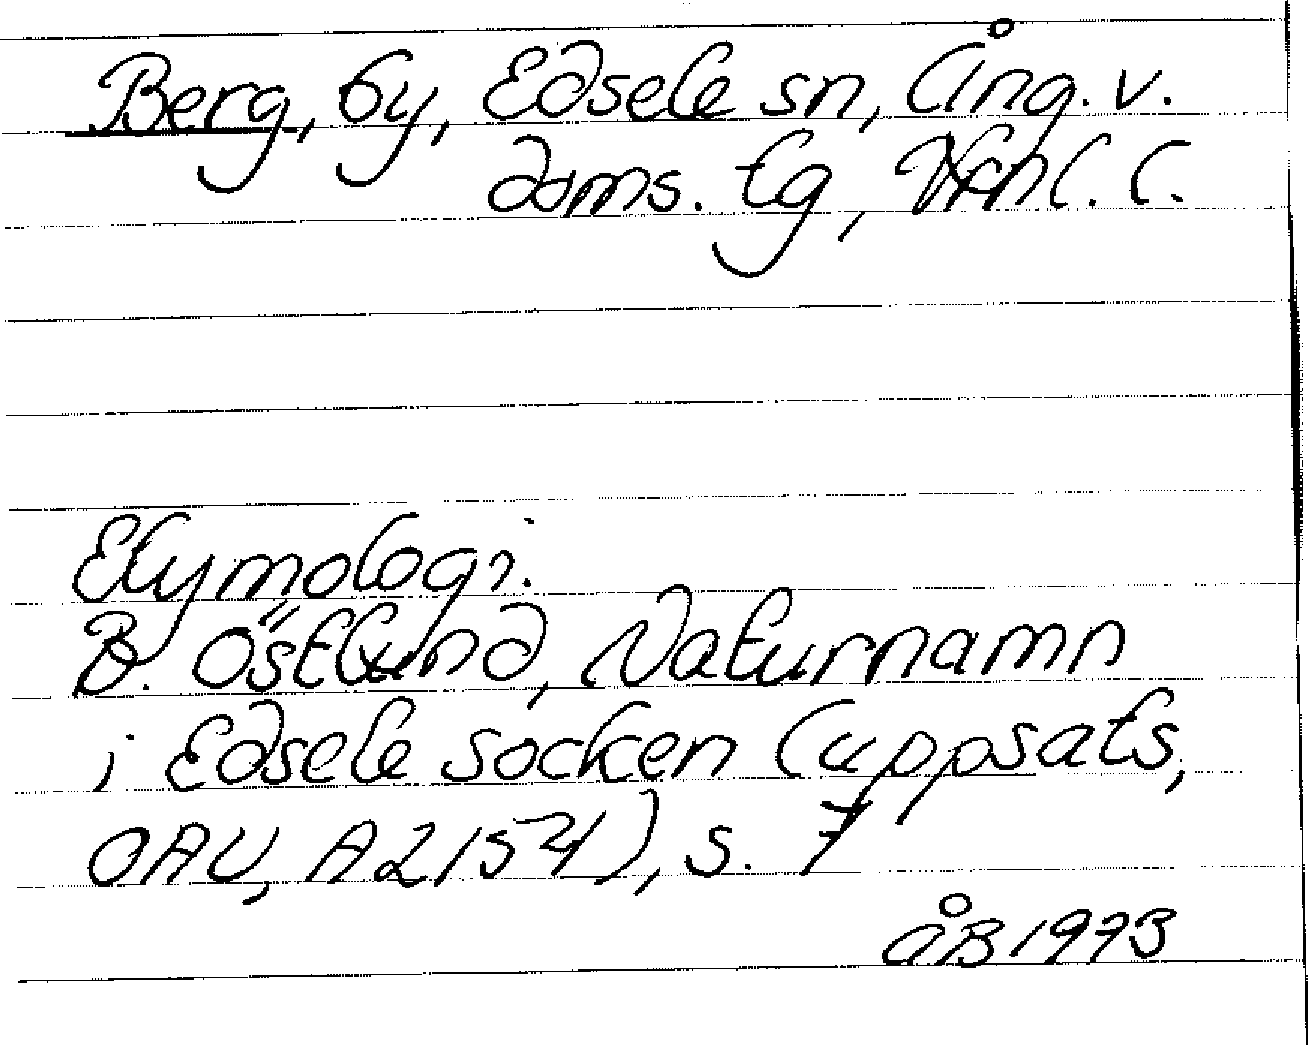 Berg, by, Edsele sn, Ång. v.
doms. tg, Vrnl. l.
Etymologi.
B. Östlund, Naturnamn
i Edsele socken (uppsats,
OAU, A2154), s. 7
ÅB 1973